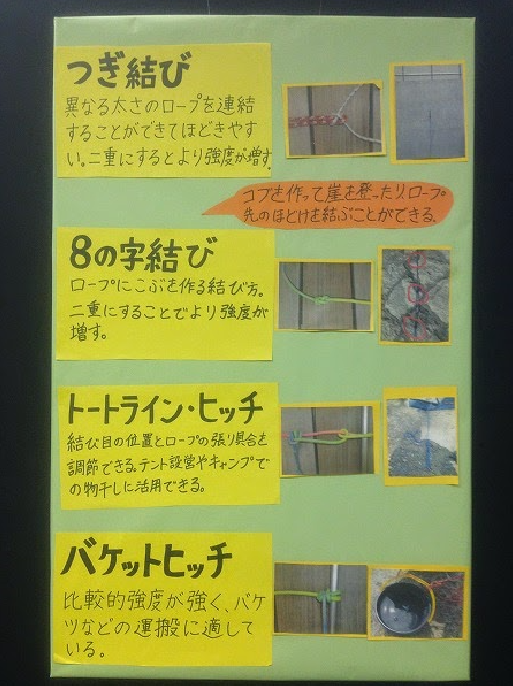 つぎ結び
異なる太さのロープを連結
することができてほどきやす
い。二重にするとより強度が増す。
コブを作って崖を登ったり、ロープ
先のほどけを結ぶことができる。
8の字結び
ロープにこぶを作る結び方。
二重にすることでより強度が
増す。
トートライン・ヒッチ
結び目の位置とロープの張り具合を
調節できる。テント設営やキャンプで
の物干しに活用できる。
バケットヒッチ
比較的強度が強く、バケ
ツなどの運搬に適して
いる。